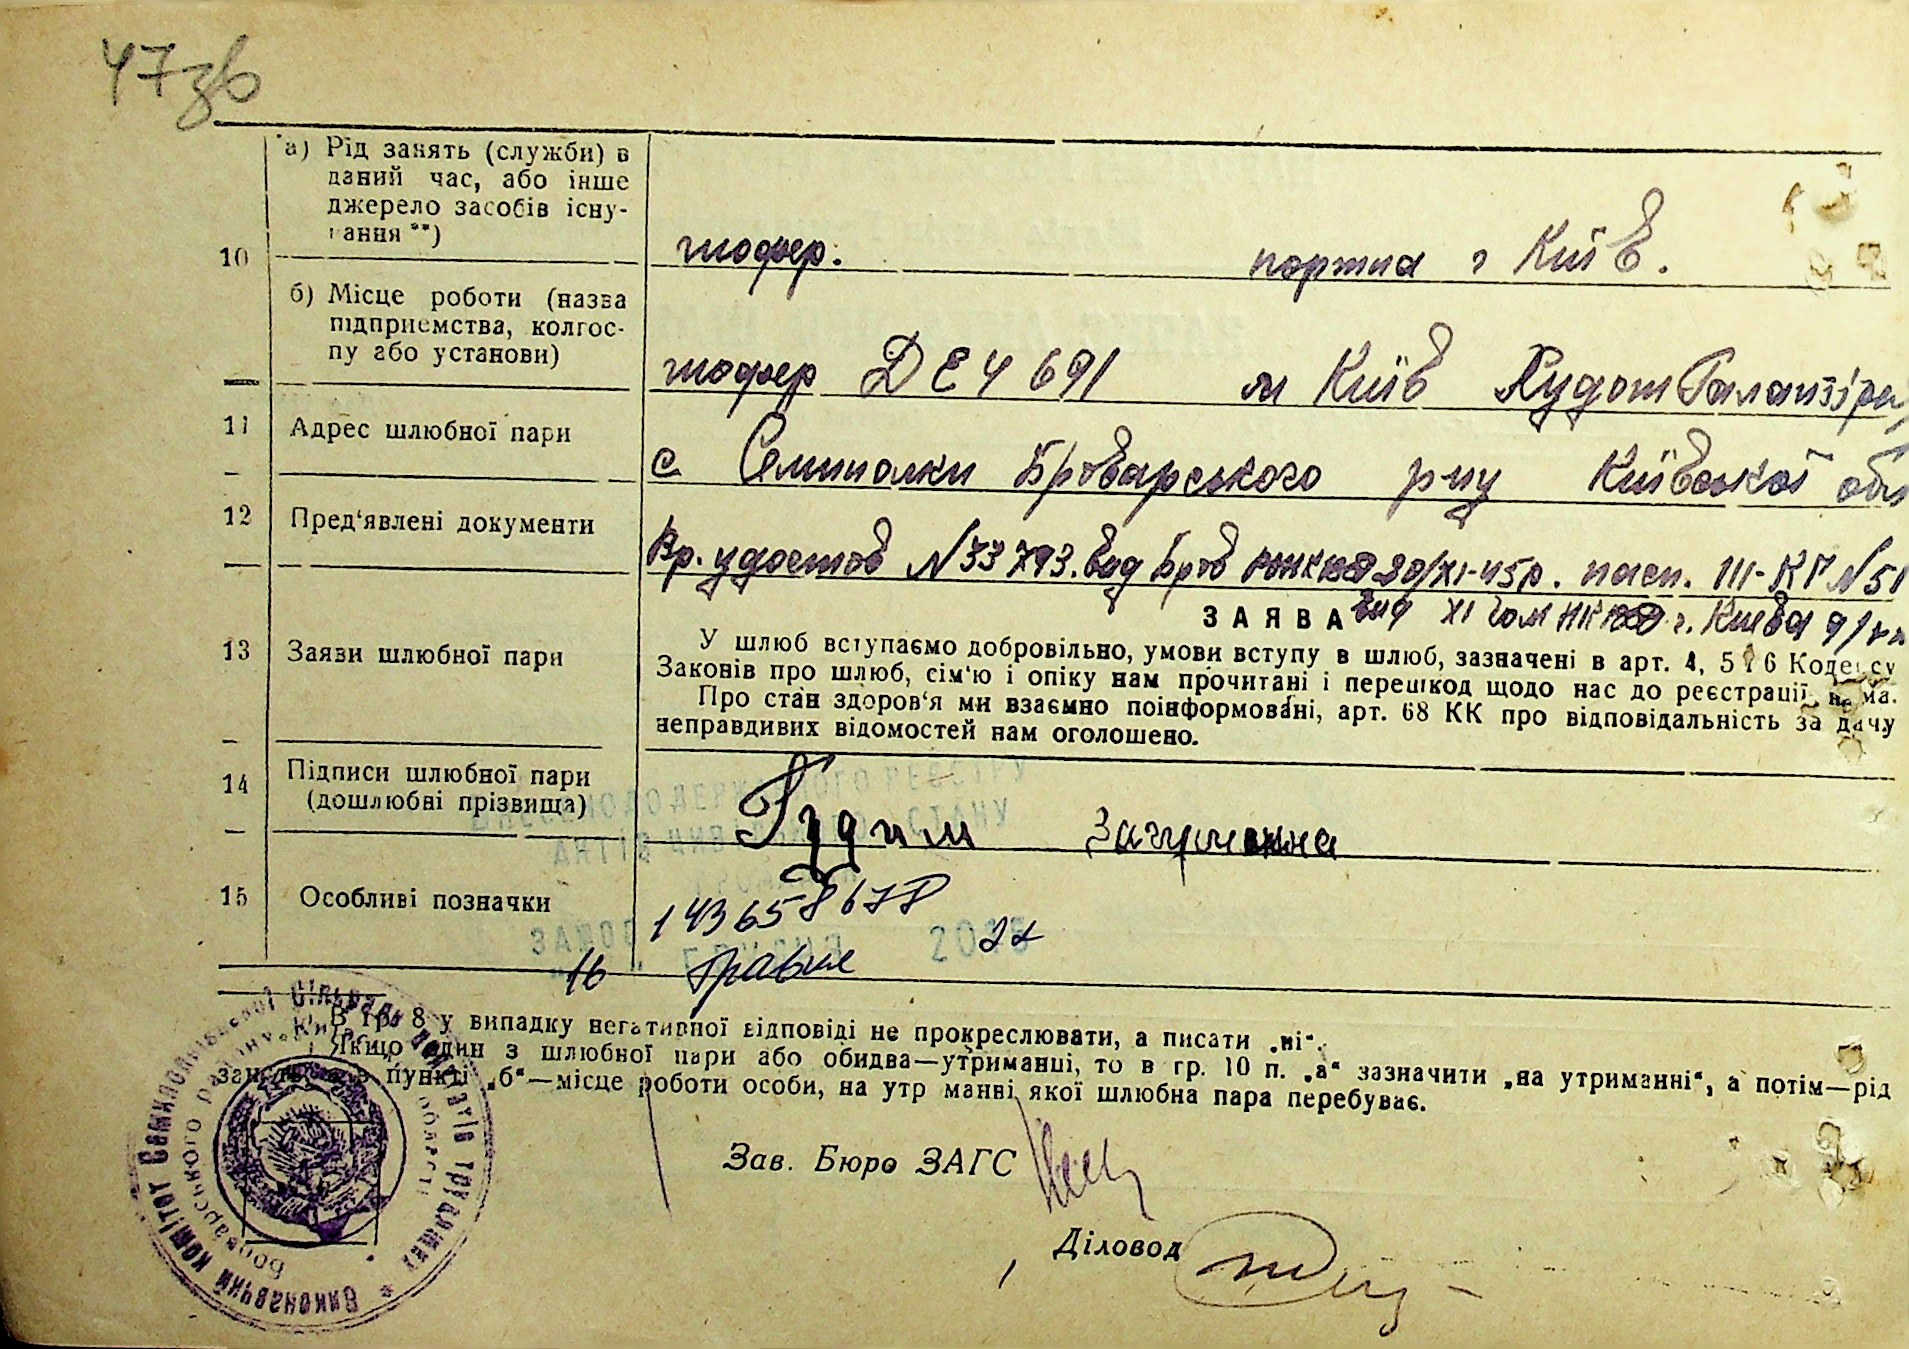 47зв
а) Рід занять (служби) в
даний час, або інше
джерело засобів існу-
вання **)
10
шофер. портна г Київ.
б) Місце роботи (назва
підприємства, колгос-
пу або установи)
шофер ДЕЧ 691 м Київ Худот Галантэра
11 Адрес шлюбної пари
с Семиполки Броварського р-ну Київської обл
12 Пред'явлені документи
Вр. удостов N 33793. вид Бров 20/XI-45р. пасп. III-КГ N 51
ЗАЯВА вид XI г. Киева
13 Заяви шлюбної пари
У шлюб вступаємо добровільно, умови вступу в шлюб, зазначені в арт. 4, 5 і 6 Кодексу
Законів про шлюб, сім'ю і опіку нам прочитані і перешкод щодо нас до реєстрації нема.
Про стан здоров'я ми взаємно поінформовані, арт. 68 КК про відповідальність за дачу
неправдивих відомостей нам оголошено.
14 Підписи шлюбної пари
(дошлюбні прізвища)
ДЕРЖАВНОГО РЕЄСТРУ
АКТІВ ЦИВІЛЬНОГО СТАНУ
Гудим
15 Особливі позначки
ГРУДНЯ 2015
16 травня
В гр. 8 у випадку негативної відповіді не прокреслювати, а писати „ні“.
Якщо один з шлюбної пари або обидва—утриманці, то в гр. 10 п. „а“ зазначити „на утриманні“, а потім—рід
занять, а в пункті „б“—місце роботи особи, на утр манні якої шлюбна пара перебуває.
Виконавчий комітет Семиполківської сільради депутатів трудящих
Броварського району Київської області
Зав. Бюро ЗАГС
Діловод